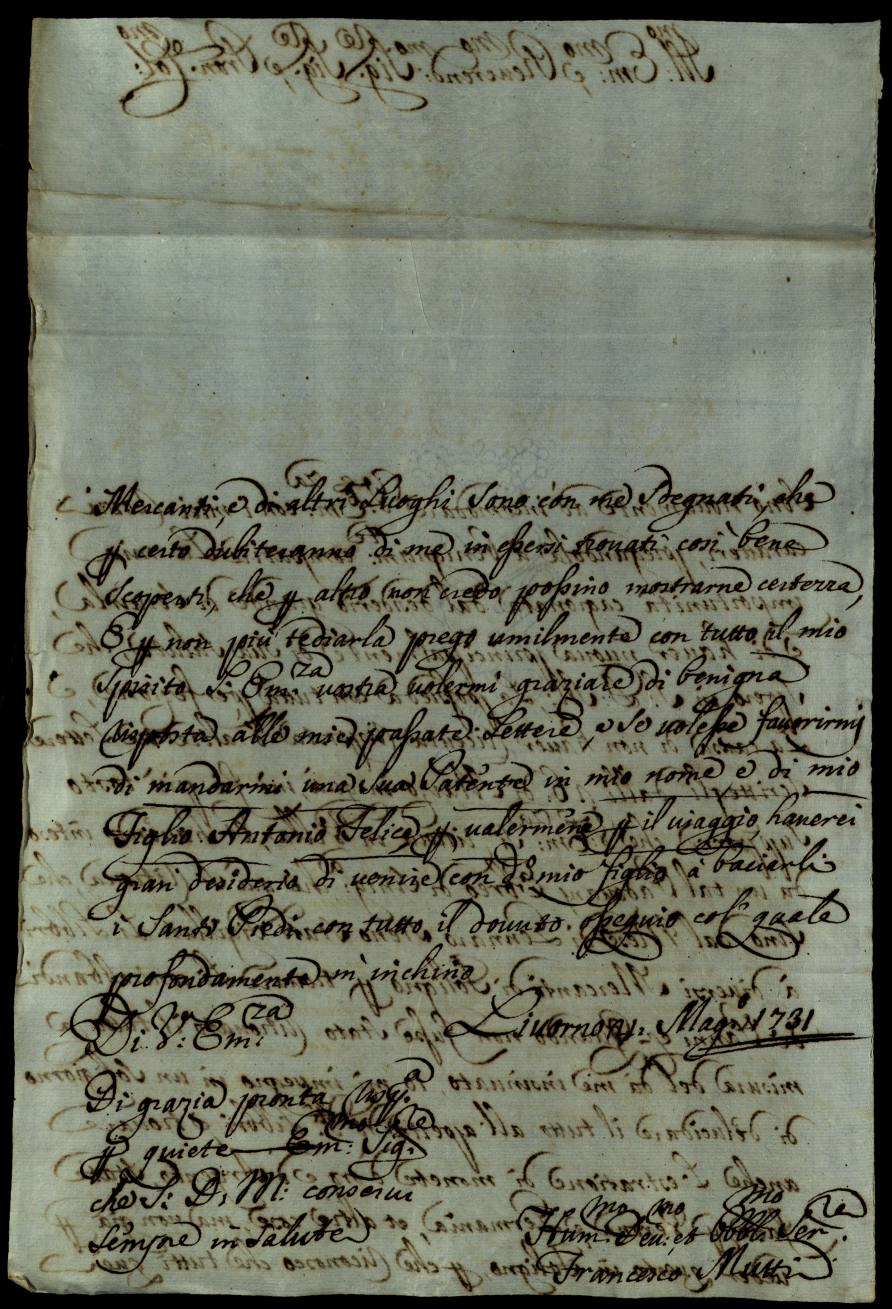 Mercanti, e di altri Luoghi sono con me sdegnati, che
ꝑ certo dubiteranno di me in essersi trovati così bene
scoperti, che ꝑ altro non credo possino mostrarne certezza,
E ꝑ non più tediarla prego umilmente con tutto il mio
spirito S: Em.za vostra volermi graziare di benigna
risposta alle mie passate Lettere e se volesse favorirmi
di mandarmi una sua Patente in mio nome e di mio
Figlio Antonio Felice ꝑ valermene ꝑ il viaggio, haverei
gran desiderio di venire con d.o mio figlio à baciarli
i Santi Piedi con tutto il dovuto ossequio col quale
profondamente m'inchino
Di V: Em.za Livorno Mag.o 1731
Di grazia pronta risp.a
ꝑ quiete Em.mo Sig.re
che S: D: M: conservi
sempre in salute
Hum.mo Deu.mo et Obbl.mo Ser.re
Francesco Mutti